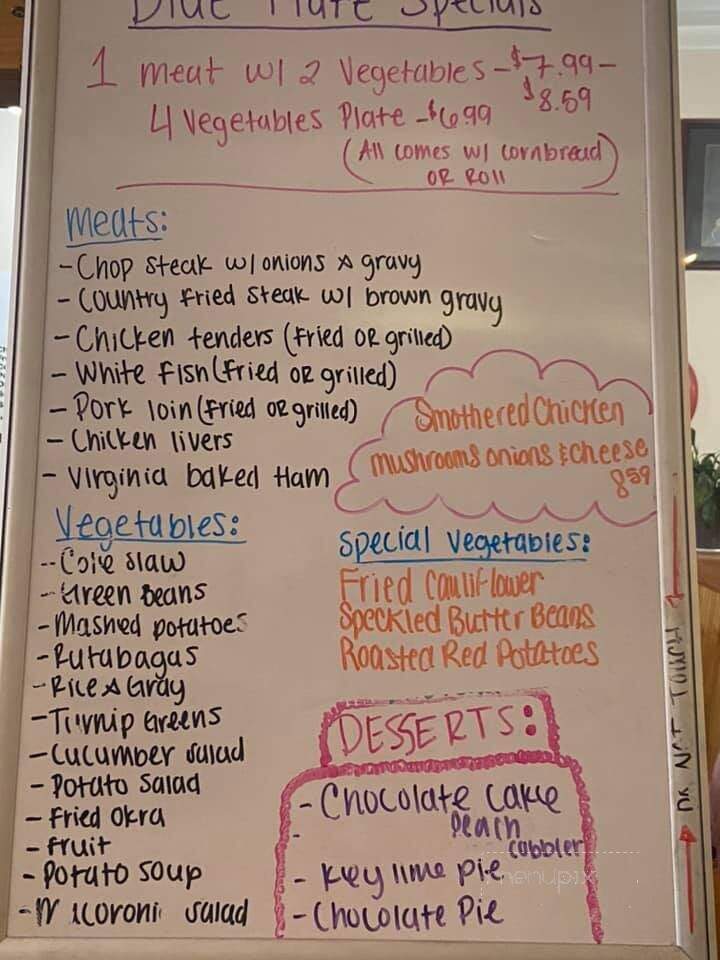 Blue Plate Specials
1 meat w/ 2 Vegetables - $7.99 -
$8.59
4 Vegetables Plate - $6.99
(All comes w/ cornbread
OR ROll)
Meats:
- Chop steak w/ onions & gravy
- Country Fried Steak w/ brown gravy
- Chicken tenders (Fried OR grilled)
- White Fish (Fried OR grilled)
- Pork loin (Fried OR grilled)
- Chicken livers
- Virginia baked Ham
Smothered Chicken
mushrooms onions & cheese
859
Vegetables:
- Cole slaw
- Green Beans
- Mashed potatoes
- Rutabagas
- Rice & Gray
- Turnip Greens
- Cucumber salad
- Potato Salad
- Fried Okra
- Fruit
- Potato Soup
- Macoroni salad
Special Vegetables:
Fried Cauliflower
Speckled Butter Beans
Roasted Red Potatoes
DESSERTS:
- Chocolate Cake
- Peach
cobbler
- Key lime pie
- Chocolate Pie
DO NOT TOUCH
menupix